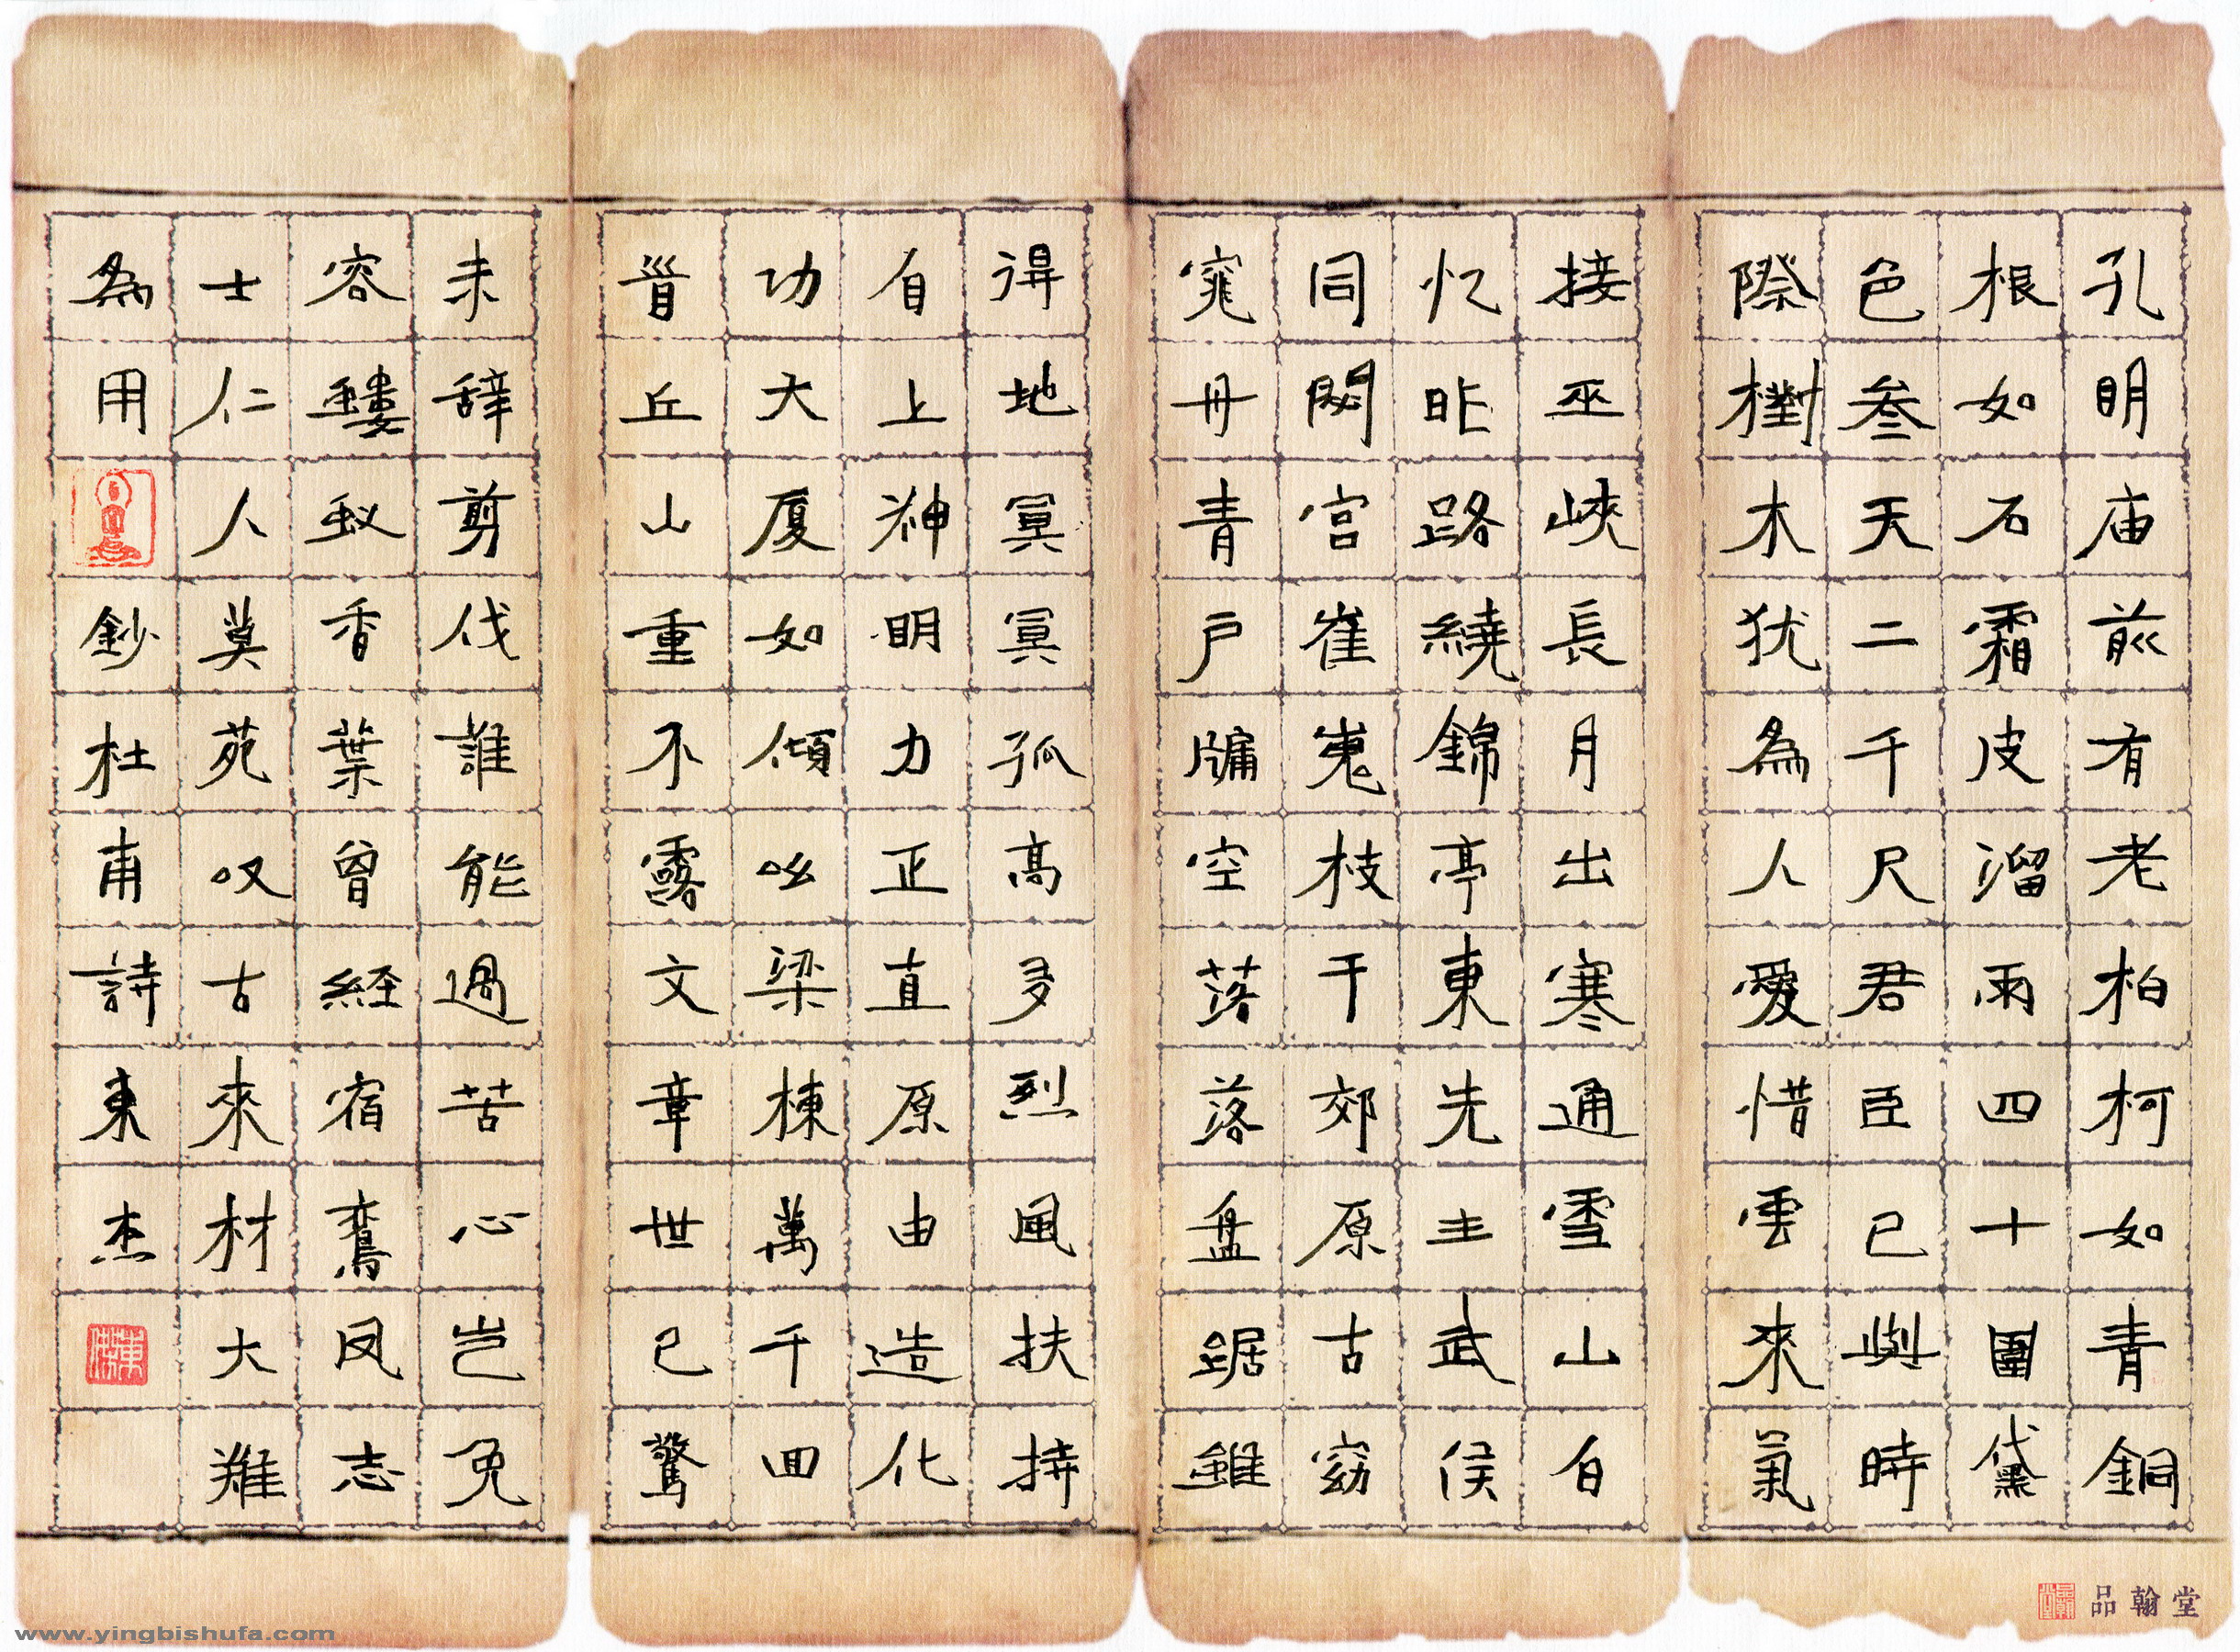 孔明庙前有老柏柯如青銅
根如石霜皮溜雨四十圍黛
色叁天二千尺君臣已與時
際樹木犹為人愛惜雲來氣
接巫峽長月出寒通雪山白
忆昨路繞錦亭東先主武侯
同閟宫崔嵬枝干郊原古窈
窕丹青户牖空落落盘踞雖
得地冥冥孤高多烈風扶持
自上神明力正直原由造化
功大厦如傾必梁棟萬千回
首丘山重不露文章世已驚
未辞剪伐誰能過苦心岂免
容螻蚁香葉曾経宿鸞凤志
士仁人莫苑叹古來材大難
為用
鈔杜甫詩東杰
品翰堂
www.yingbishufa.com